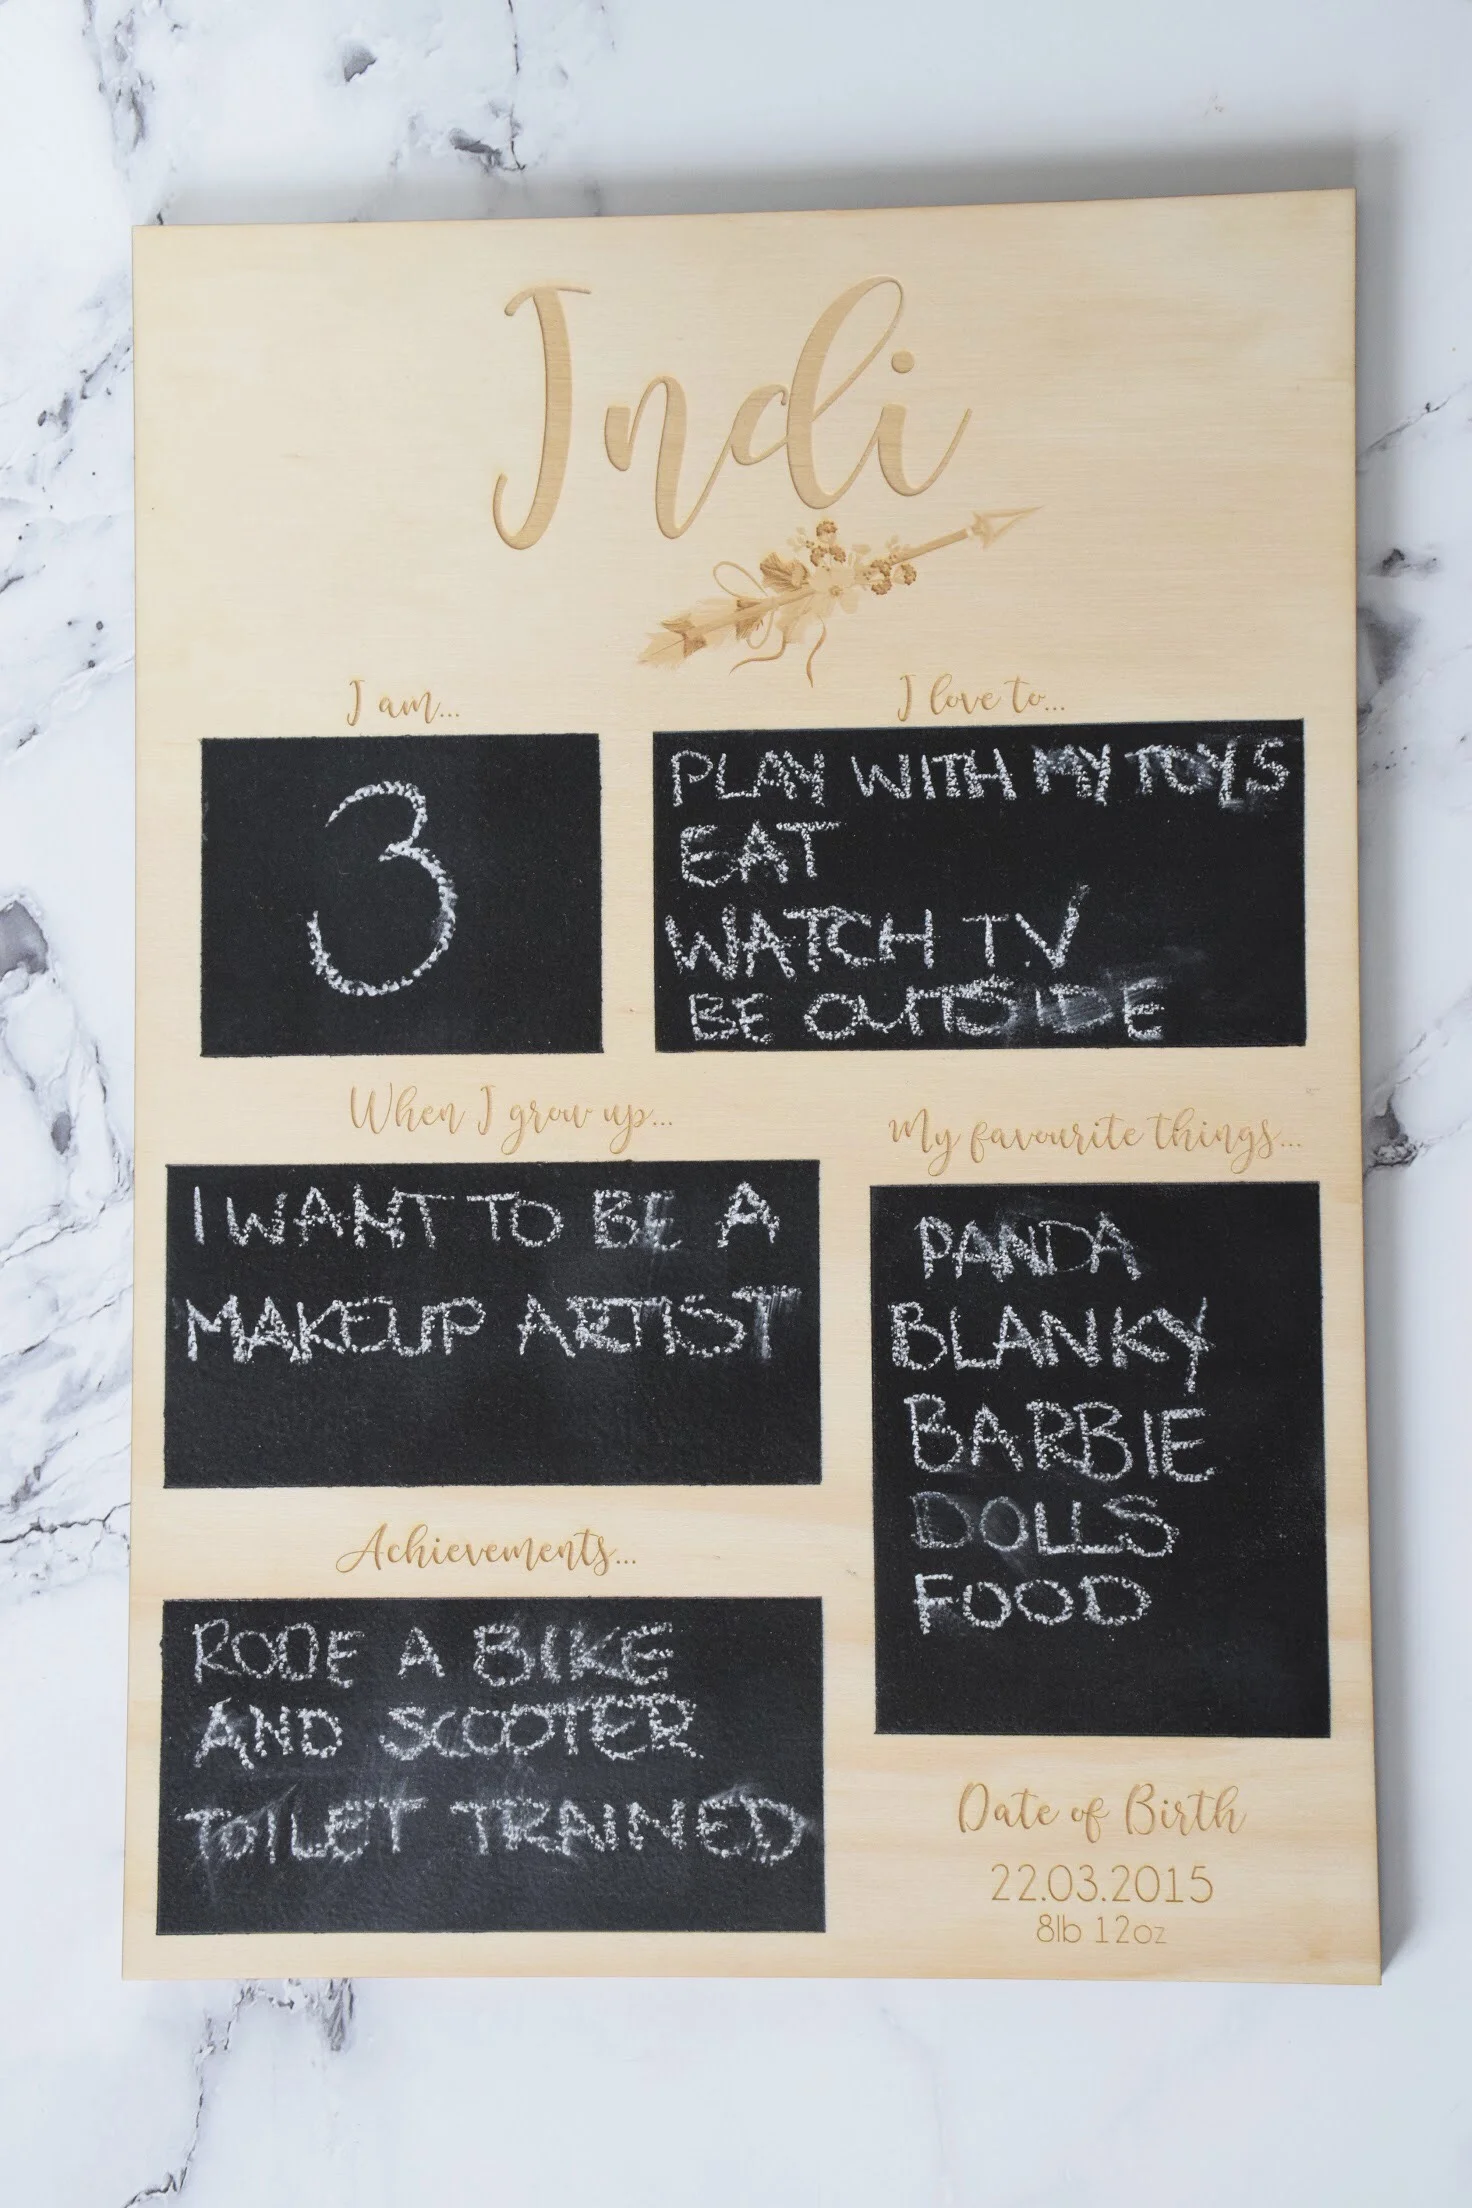 Indi
I am...
3
I love to...
PLAY WITH MY TOYS
EAT
WATCH TV
BE OUTSIDE
When I grow up...
I WANT TO BE A
MAKEUP ARTIST
My favourite things...
PANDA
BLANKY
BARBIE
DOLLS
FOOD
Achievements...
RODE A BIKE
AND SCOOTER
TOILET TRAINED
Date of Birth
22.03.2015
8lb 12oz